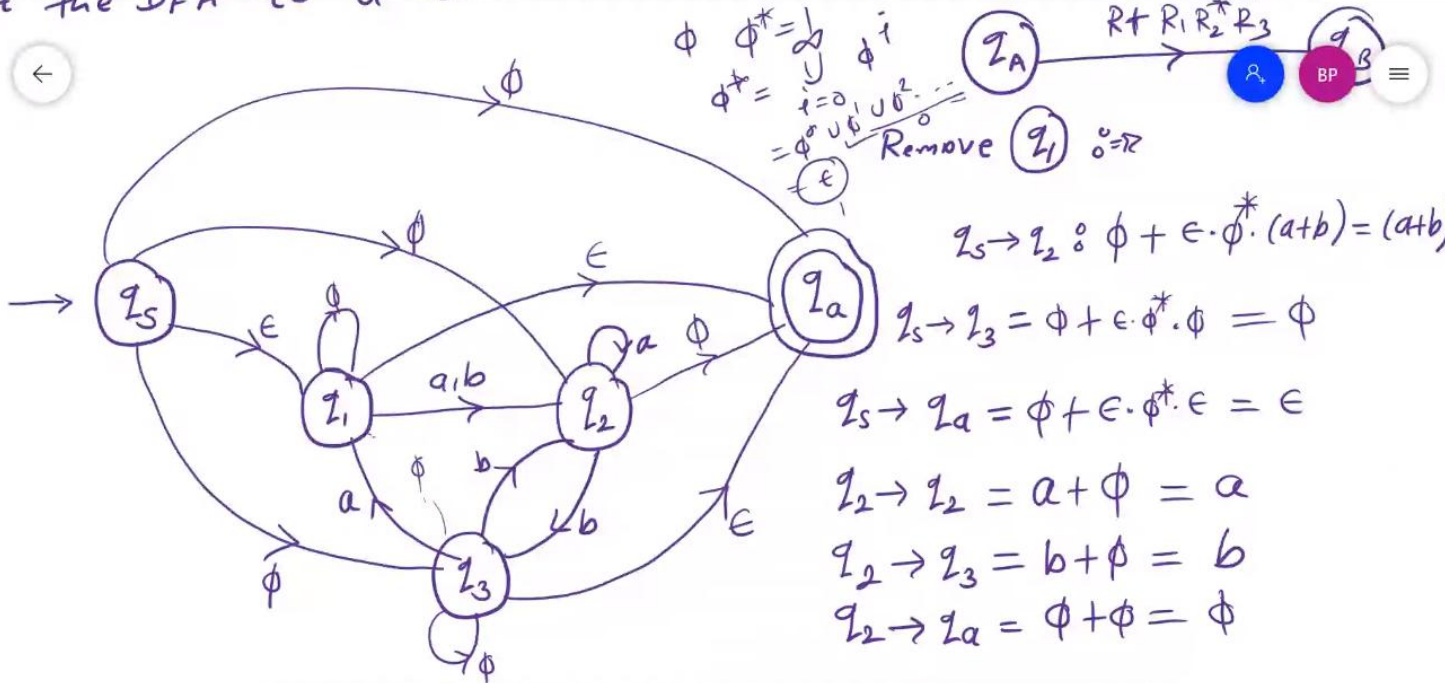 the DFA
ϕ ϕ* = ∞ ∪ ϕⁱ
ϕ* = i=0
= ϕ⁰ ∪ ϕ¹ ∪ ϕ² ...
= ϵ
q_A R + R₁ R₂* R₃ q_B
BP
Remove q₁ :=
q_s → q₂ : ϕ + ϵ·ϕ*·(a+b) = (a+b)
q_s → q₃ = ϕ + ϵ·ϕ*·ϕ = ϕ
q_s → q_a = ϕ + ϵ·ϕ*·ϵ = ϵ
q₂ → q₂ = a + ϕ = a
q₂ → q₃ = b + ϕ = b
q₂ → q_a = ϕ + ϕ = ϕ
ϕ
ϕ
ϵ
q_s
q_a
ϕ
ϵ
a
ϕ
a,b
q₁
q₂
ϕ
b
a
b
ϵ
q₃
ϕ
ϕ